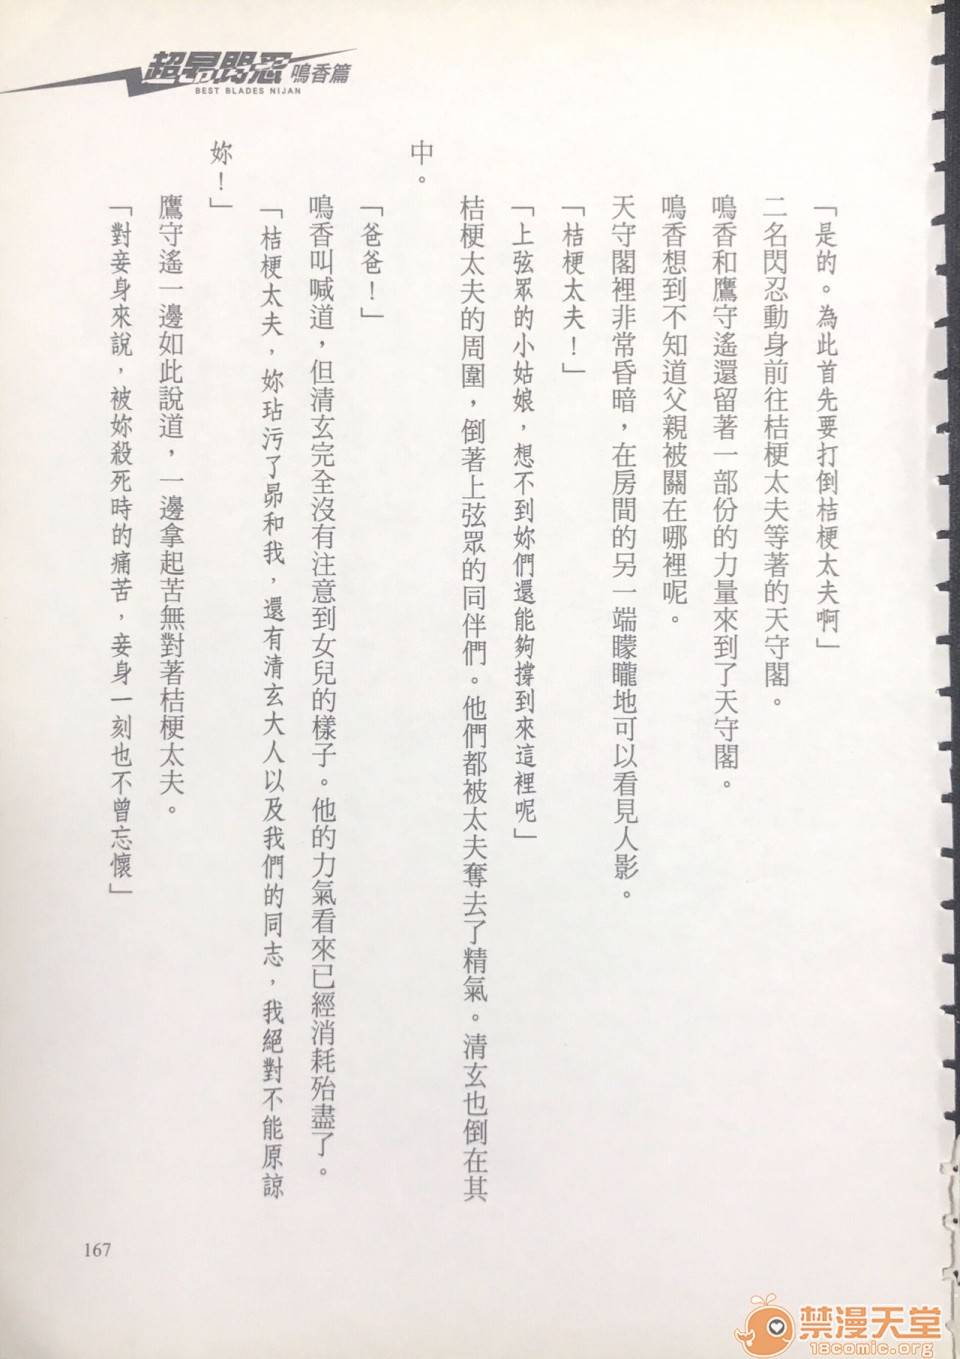 超昂閃忍 鳴香篇
BEST BLADES NIJAN
「是的。為此首先要打倒桔梗太夫啊」
二名閃忍動身前往桔梗太夫等著的天守閣。
鳴香和鷹守遙還留著一部份的力量來到了天守閣。
鳴香想到不知道父親被關在哪裡呢。
天守閣裡非常昏暗，在房間的另一端矇矓地可以看見人影。
「桔梗太夫！」
「上弦眾的小姑娘，想不到妳們還能夠撐到來這裡呢」
桔梗太夫的周圍，倒著上弦眾的同伴們。他們都被太夫奪去了精氣。清玄也倒在其
中。
「爸爸！」
鳴香叫喊道，但清玄完全沒有注意到女兒的樣子。他的力氣看來已經消耗殆盡了。
「桔梗太夫，妳玷污了昴和我，還有清玄大人以及我們的同志，我絕對不能原諒
妳！」
鷹守遙一邊如此說道，一邊拿起苦無對著桔梗太夫。
「對妾身來說，被妳殺死時的痛苦，妾身一刻也不曾忘懷」
167
禁漫天堂
18comic.org